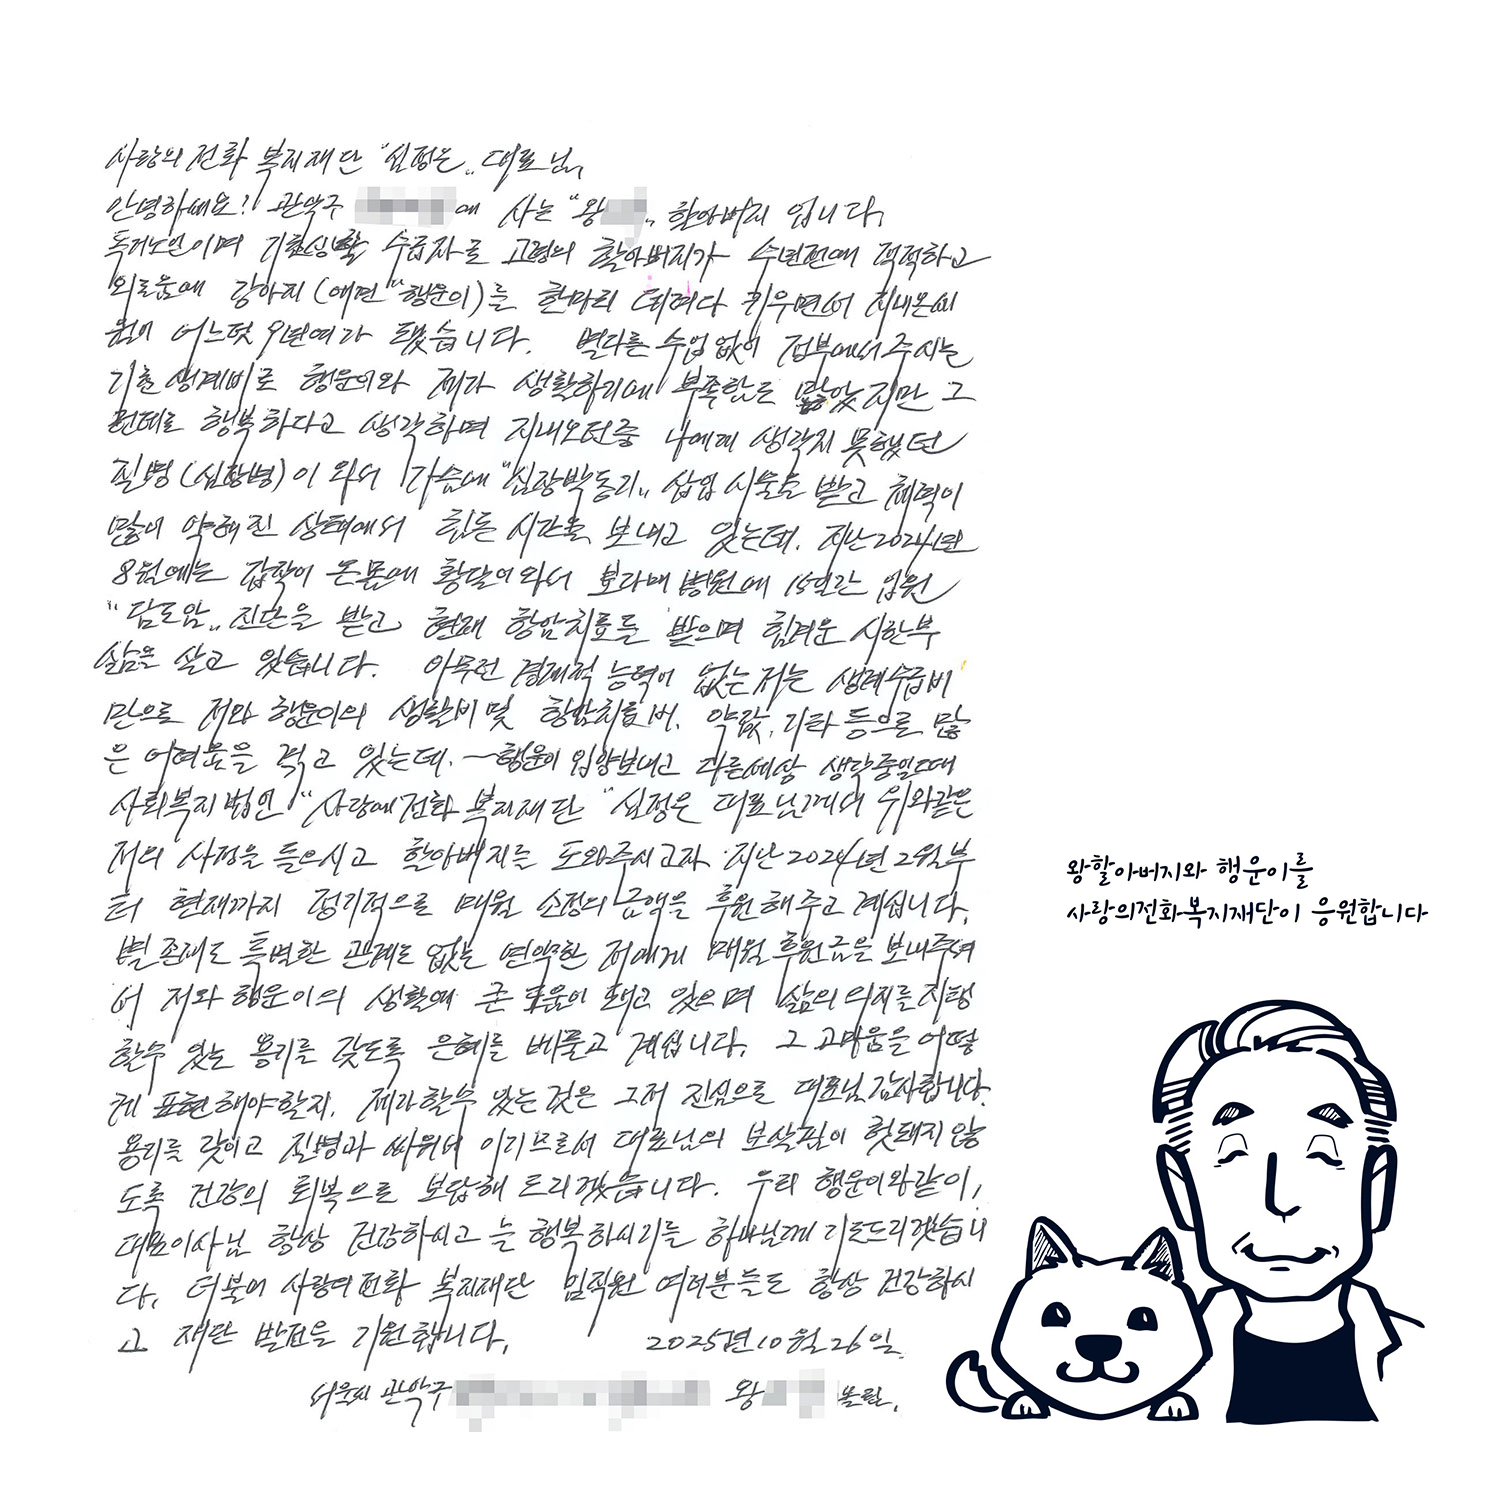 사랑의 전화 복지재단 "심정은" 대표님,
안녕하세요? 관악구 에 사는 "왕 " 할아버지 입니다,
독거노인이며 기초생활 수급자로 고령의 할아버지가 수년전에 적적하고
외로움에 강아지 (애견 "행운이)를 한마리 데려다 키우면서 지내온
어느덧 9년여가 됐습니다. 별다른 수입 없이 정부에서 주시는
기초생계비로 행운이와 제가 생활하기에 부족함도 많았지만 그
런데로 행복하다고 생각하며 지내오던중 나에게 생각지 못했던
질병 (심장병)이 와서 가슴에 "심장박동기" 삽입 시술을 받고 체력이
많이 약해진 상태에서 힘든 시간을 보내고 있는데. 지난 2024년
8월에는 갑작이 온몸에 황달이 와서 보라매 병원에 15일간 입원
"담도암" 진단을 받고 현재 항암치료를 받으며 힘겨운 시한부
삶을 살고 있습니다. 아무런 경제적 능력이 없는 저는 생계수급비
만으로 저와 행운이의 생활비 및 항암치료비. 약값, 기타 등으로 많
은 어려움을 겪고 있는데. 행운이 입양보내고 다른세상 생각중일때
사회복지법인 "사랑에전화 복지재단" 심정은 대표님께서 위와같은
저의 사정을 들으시고 할아버지를 도와주시고자 지난 2024년 2월부
터 현재까지 정기적으로 매월 소정의 금액을 후원해 주고 계십니다.
별 존재도 특별한 관계도 없는 연약한 저에게 매월 후원금을 보내주셔
서 저와 행운이의 생활에 큰 도움이 되고 있으며 삶의 의지를 지탱
할수 있는 용기를 갖도록 은혜를 베풀고 계십니다. 그 고마움을 어떻
게 표현해야할지. 제가할수 있는것은 그저 진심으로 대표님 감사합니다.
용기를 갖이고 질병과 싸워서 이기므로서 대표님의 보살핌이 헛돼지 않
도록 건강의 회복으로 보답해 드리겠습니다. 우리 행운이와같이,
대표이사님 항상 건강하시고 늘 행복하시기를 하나님께 기도드리겠습니
다. 더불어 사랑의전화 복지재단 임직원 여러분들도 항상 건강하시
고 재단 발전을 기원합니다. 2025년 10월 26일.
서울시 관악구 왕 올림.
왕할아버지와 행운이를
사랑의전화복지재단이 응원합니다